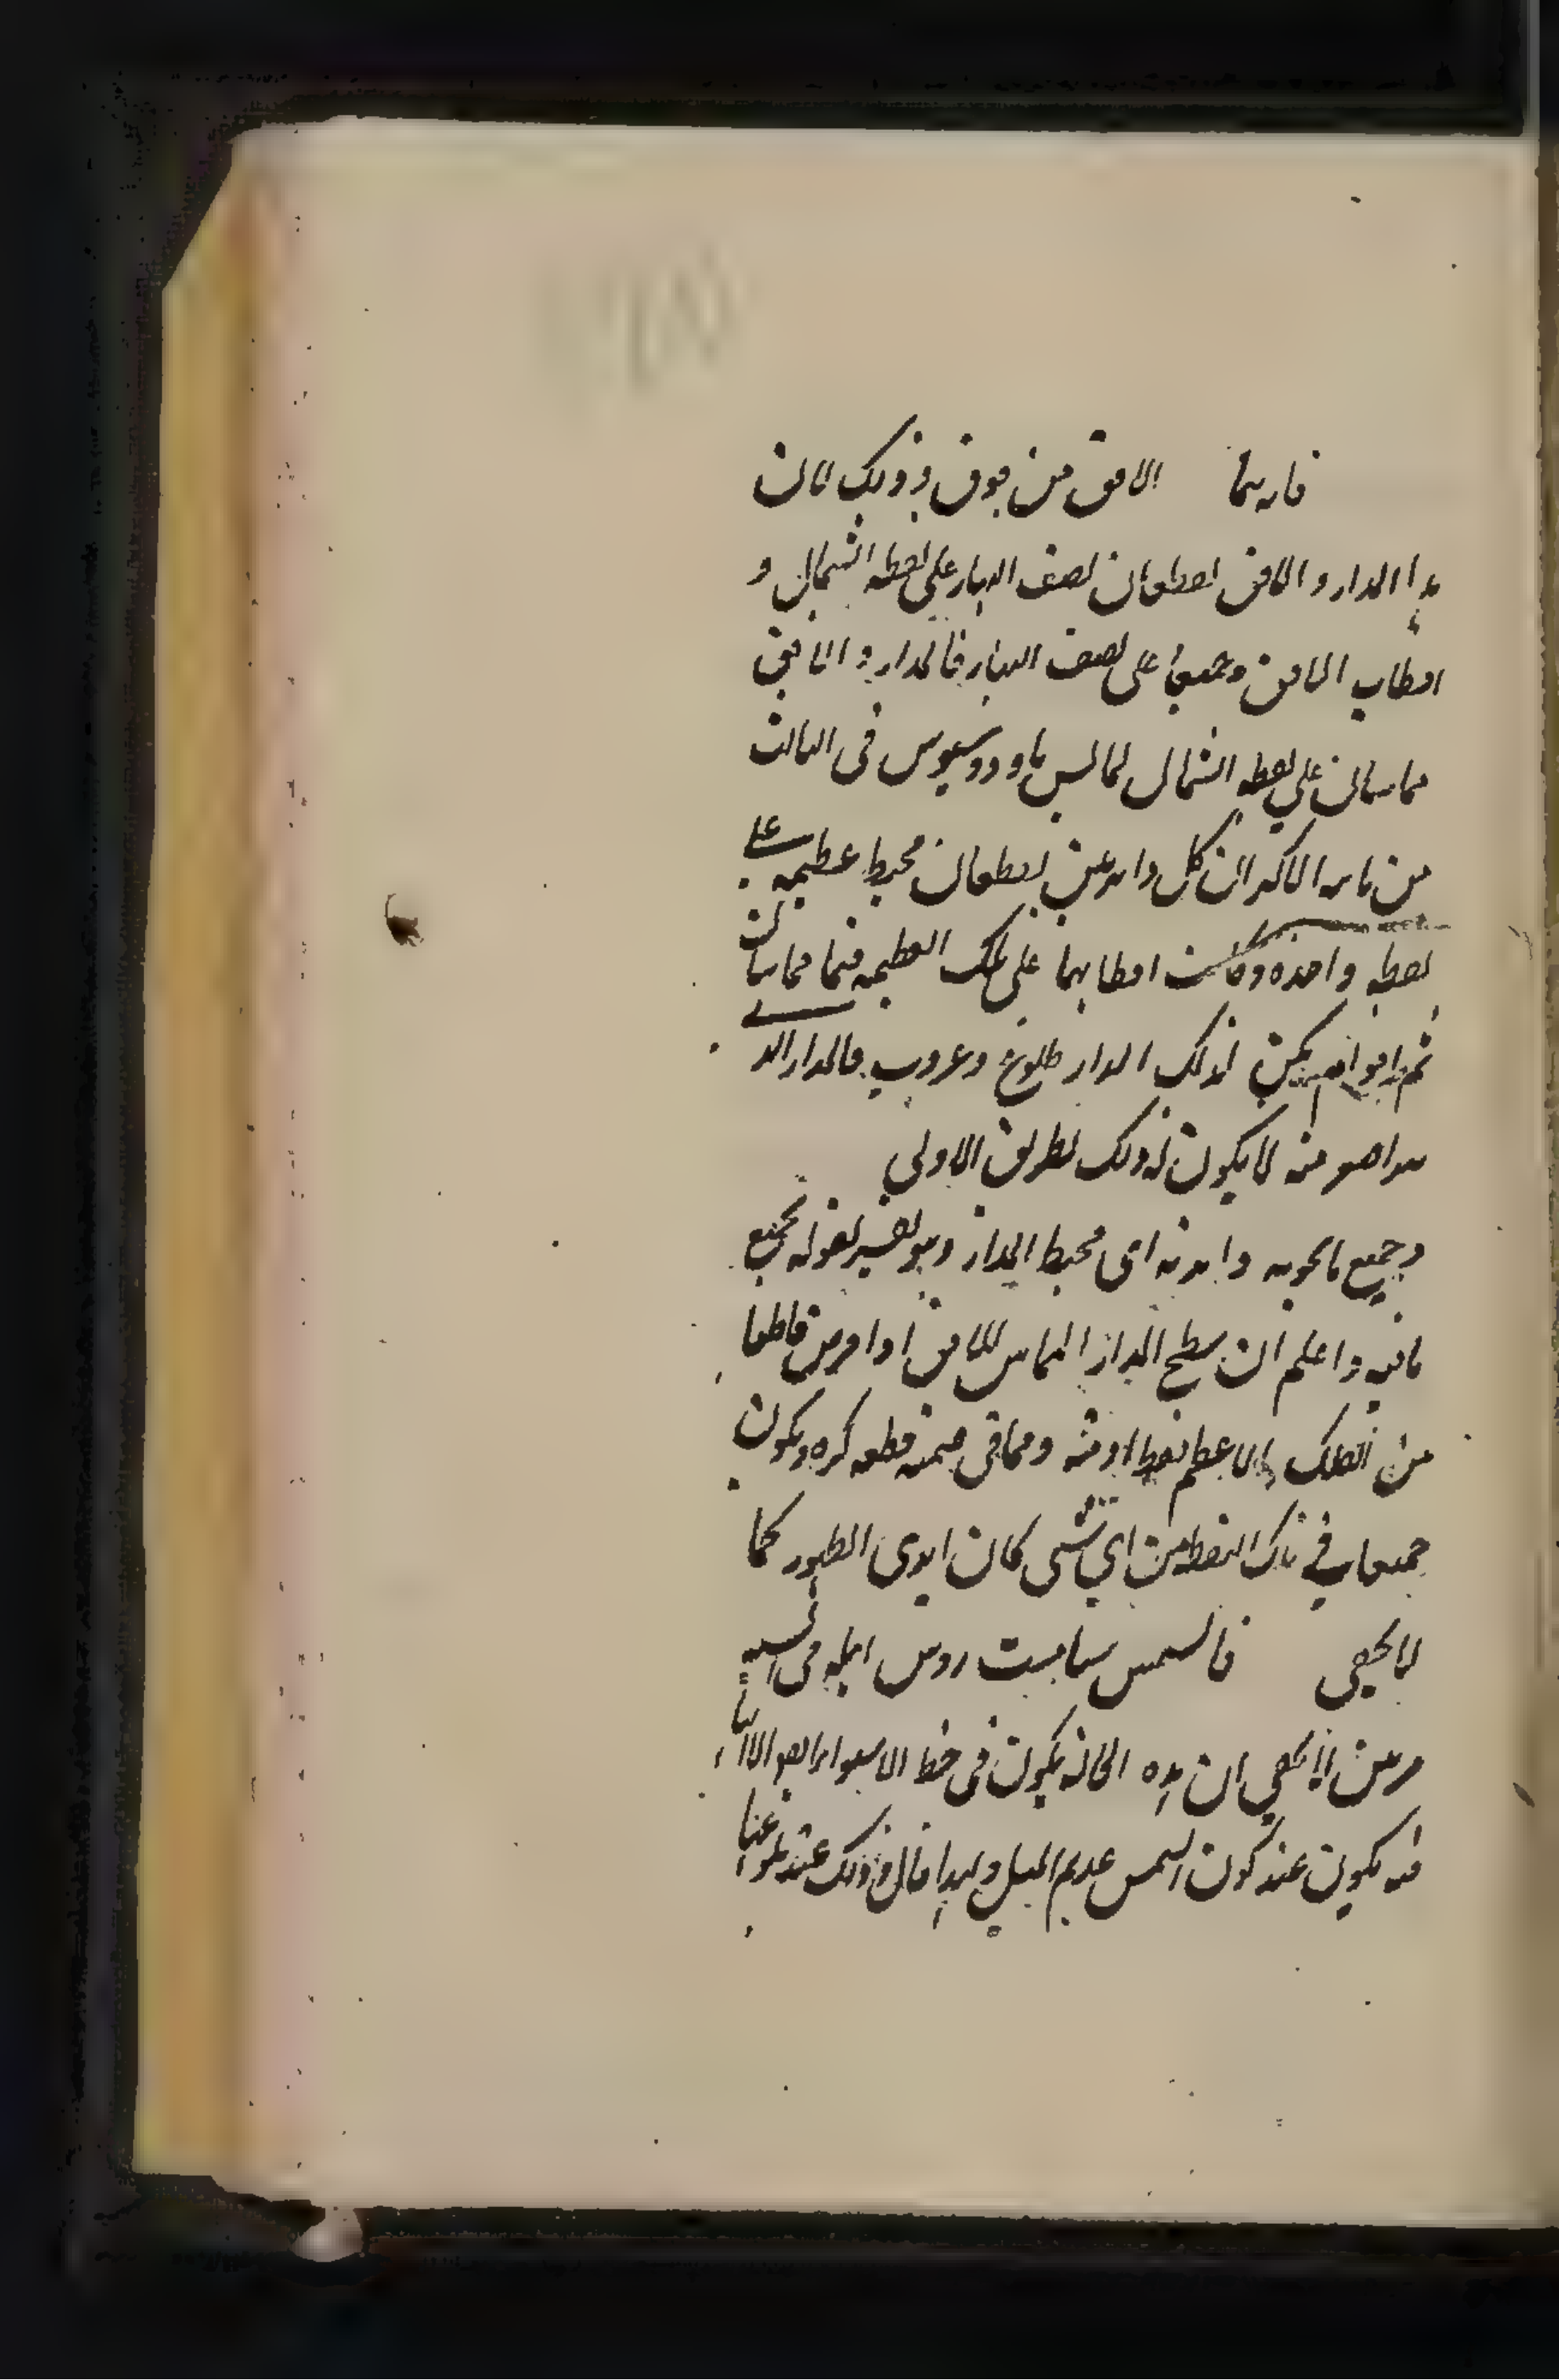 الافق من فوق وذلك لان
هذا المدار والافق يقطعان نصف النهار على نقطة الشمال و
اقطاب الافق وجميعا على نصف النهار فالمدار والافق
متماسان على نقطة الشمال ثاودوسيوس فى الثالث
من الاكر ان كل دايرتين يقطعان محيط عظيمة على
نقطة واحدة وكانت اقطابهما على تلك العظيمة فهما متماسان
لم يكن لذلك المدار طلوع وغروب فالمدار الذ
اصغر منه لا يكون له ذلك بطريق الاولى
وجميع ما يحويه دايرته اى محيط المدار وهو تفسير لقوله بجميع
ما فيه واعلم ان سطح المدار المماس للافق اذا فرض قاطعا
من الفلك الاعظم قطعة كره ويكون
جميع ما فى تلك اى شى كان ابدى الظهور كما
لا يخفى فالشمس تسامت روس اهله فى السنة
مرتين لا يخفى ان هذه الحالة يكون فى خط الاستواء ايضا الا ان
فيه يكون عند كون الشمس عديم الميل ولهذا قال وذلك عند بلوغها